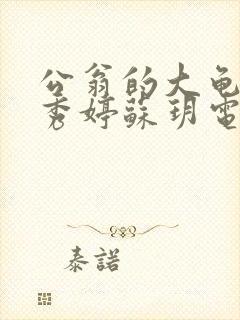 公翁的大龟
秀婷蘇玥電
泰諾